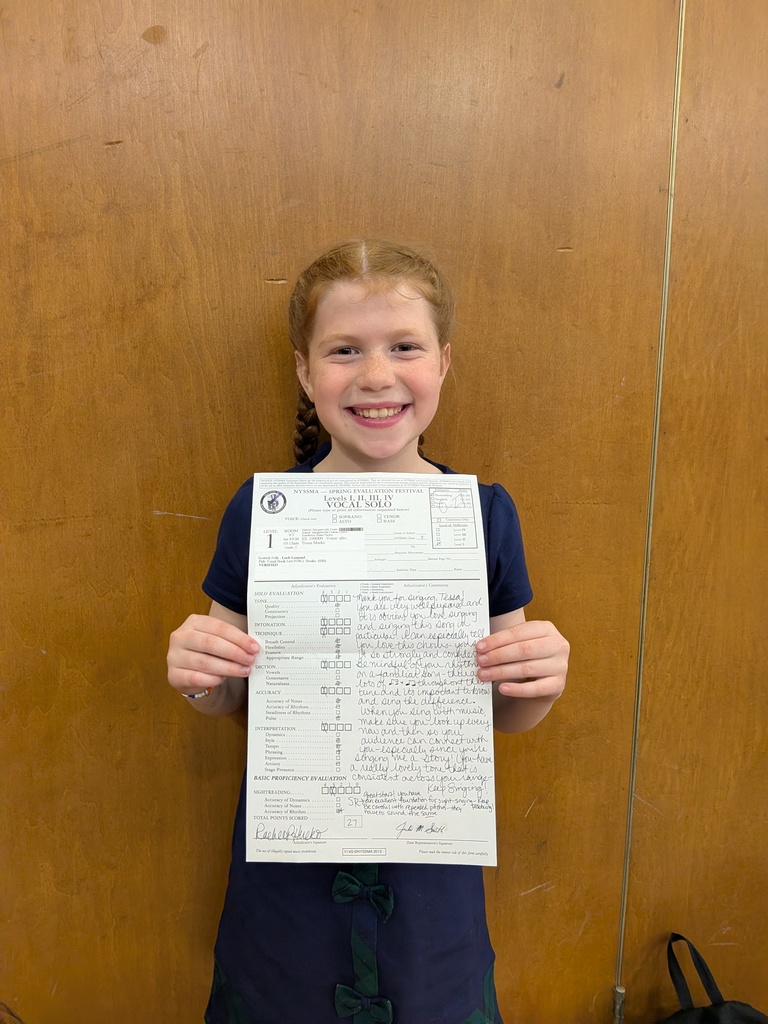 NYSSMA — SPRING EVALUATION FESTIVAL
Levels I, II, III, IV
VOCAL SOLO
(Please type or print all information requested below)
VOICE: (check one)
SOPRANO
TENOR
ALTO
BASS
LEVEL
1
ROOM
Scottish Folk - Loch Lomond
VERIFIED
Adjudicator's Evaluation
Adjudicator's Comments
SOLO EVALUATION
TONE
Quality
Consistency
Projection
INTONATION
TECHNIQUE
Breath Control
Flexibility
Posture
Appropriate Range
DICTION
Vowels
Consonants
Naturalness
ACCURACY
Accuracy of Notes
Accuracy of Rhythms
Steadiness of Rhythms
Pulse
INTERPRETATION
Dynamics
Style
Tempo
Phrasing
Expression
Artistry
Stage Presence
BASIC PROFICIENCY EVALUATION
SIGHTREADING
Accuracy of Dynamics
Accuracy of Notes
Accuracy of Rhythm
TOTAL POINTS SCORED
27
Thank you for singing, Tessa!
You are very well prepared and
it is obvious you love singing
and singing this song in
particular! I can especially tell
you love this chorus - you sing
it so strongly and confidently
Be mindful of your rhythm
on a familiar song - there are
lots of throughout this
tune and it's important to know
and sing the difference.
When you sing with music
make sure you look up every
now and then so your
audience can connect with
you - especially since you're
singing me a story! You have
a really lovely tone that is
consistent across your range
Keep Singing!
SR: Great start! You have
an excellent foundation for sight-singing - keep
be careful with repeated pitches - they
have to sound the same
Adjudicator's Signature